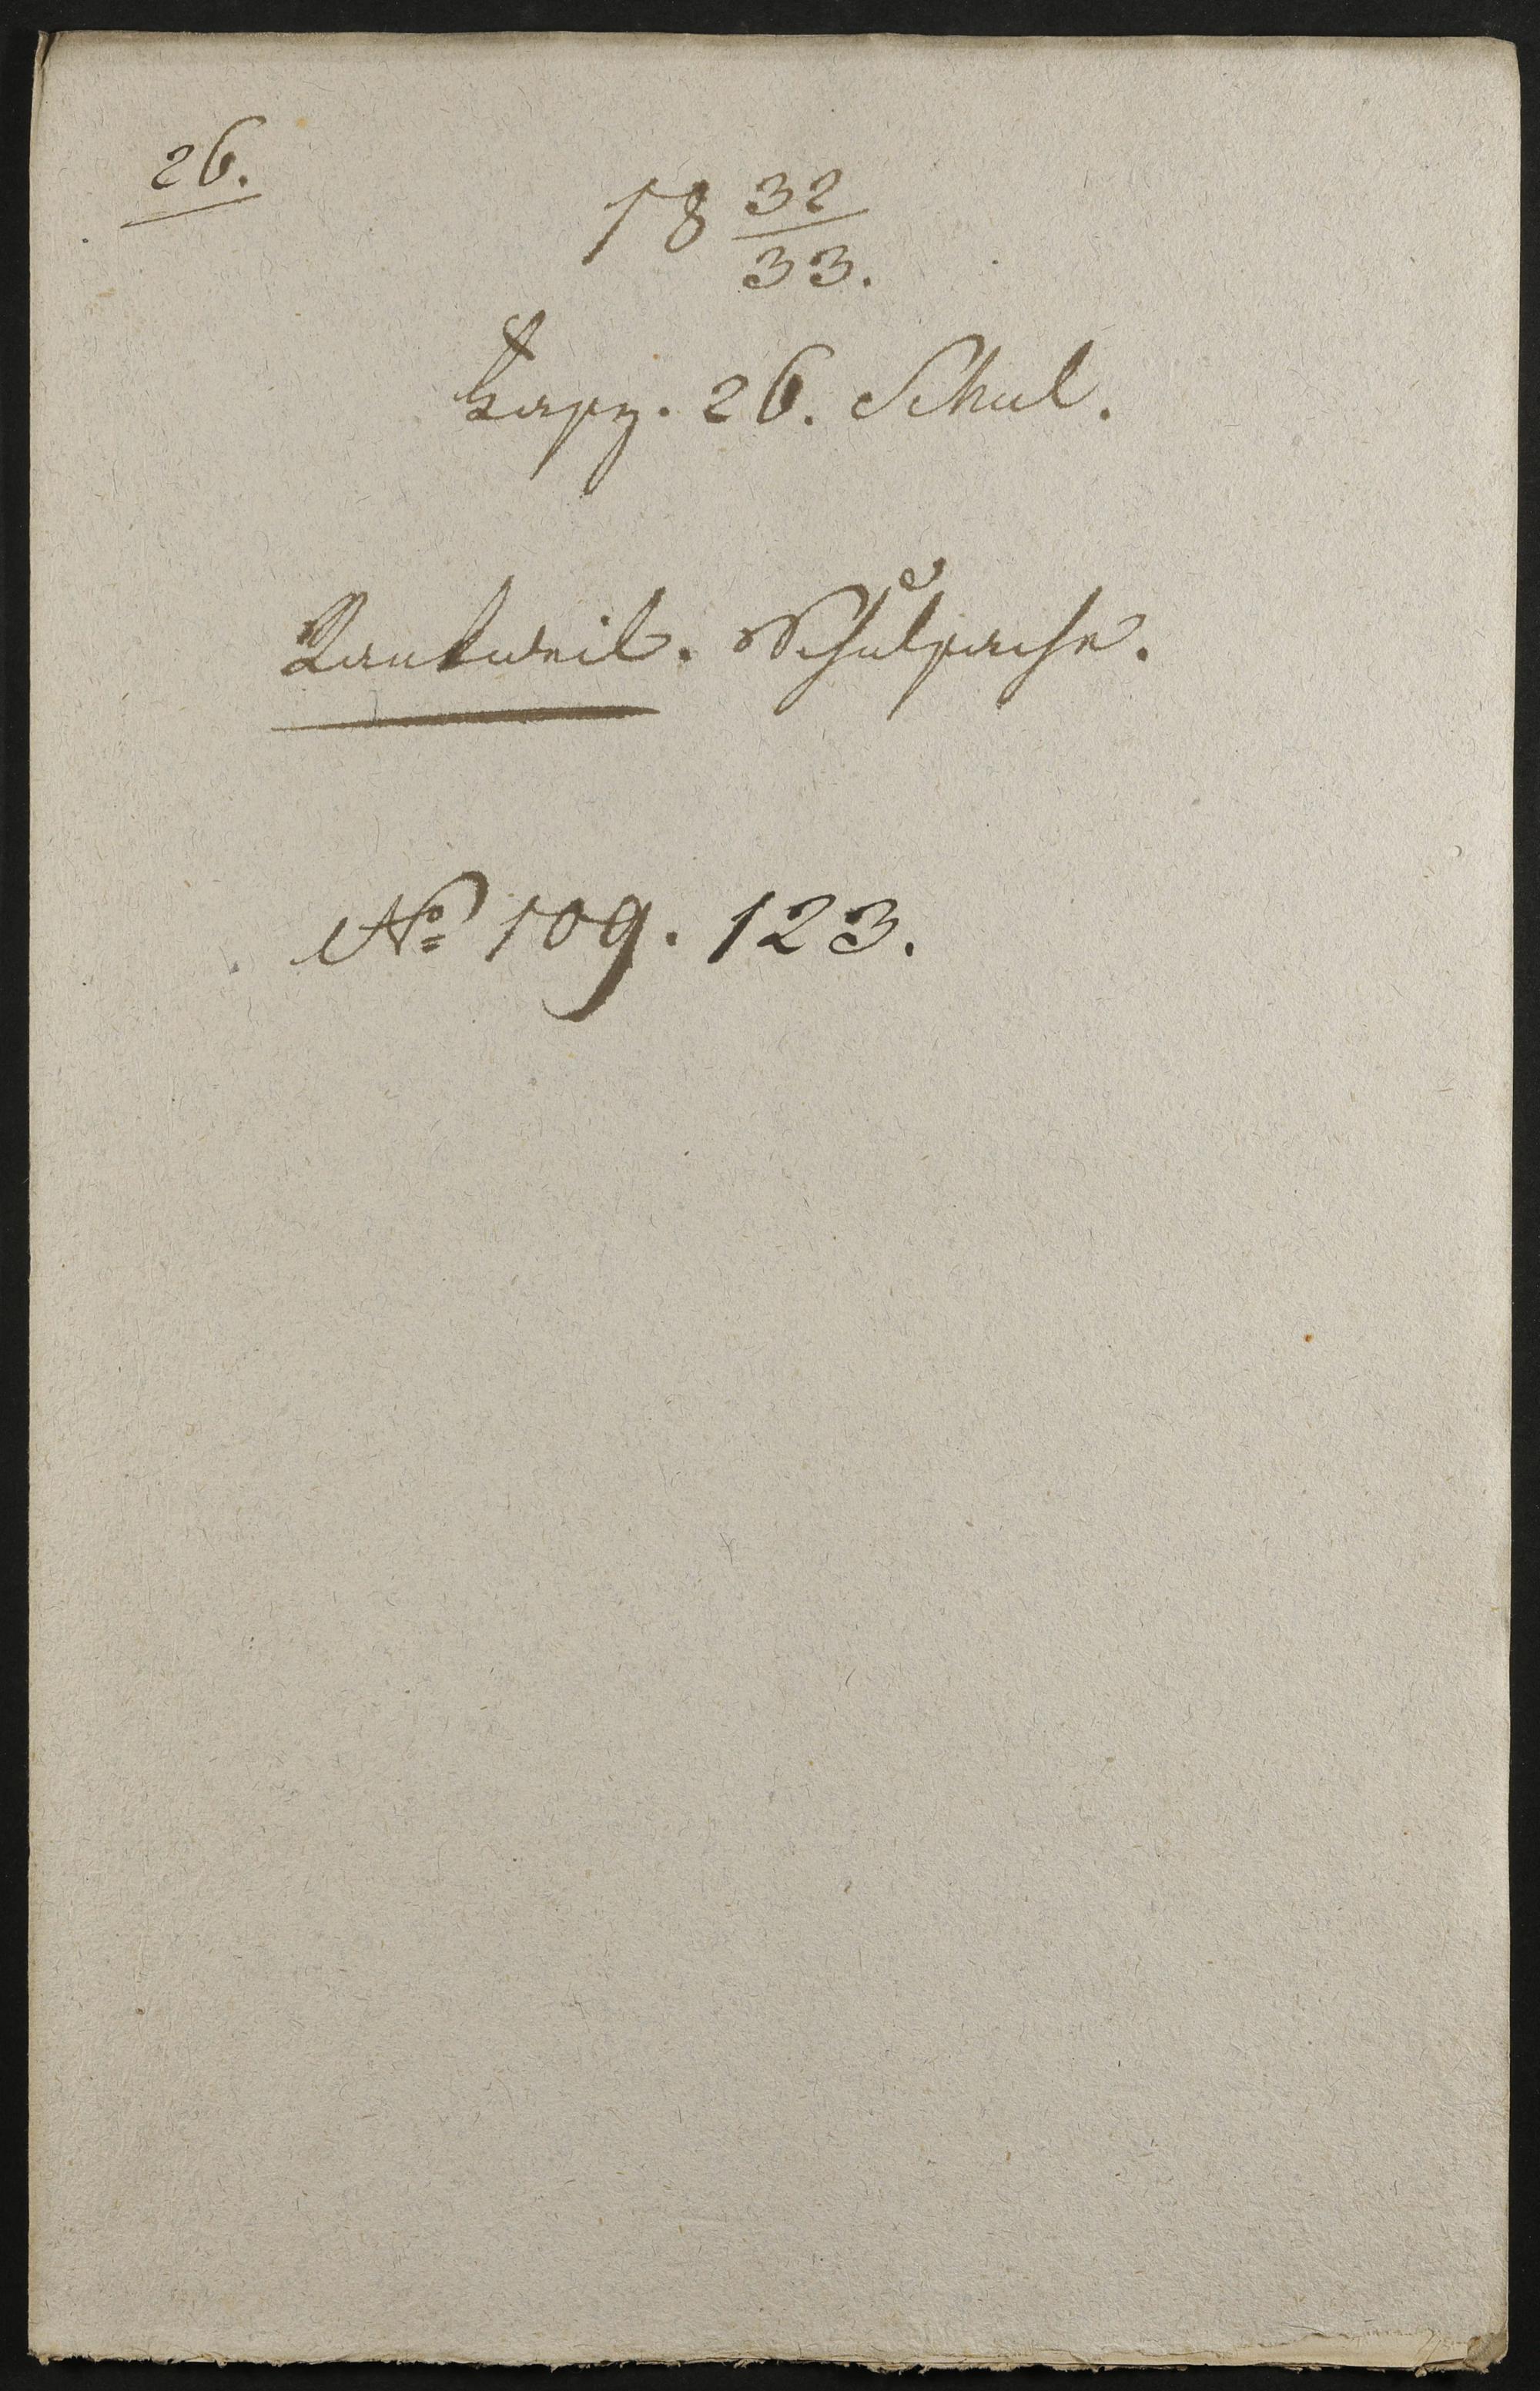 26.
18 32/33.
Fasz. 26. Schul.
Rankweil. Schulsache.
No 109. 123.